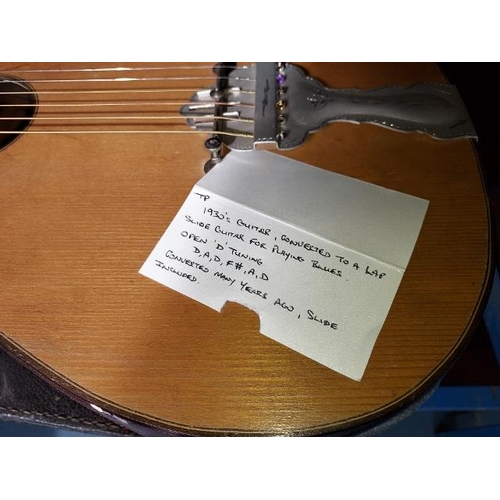 TP
1930's GUITAR, CONVERTED TO A LAP
SLIDE GUITAR FOR PLAYING BLUES.
OPEN 'D' TUNING
D, A, D, F#, A, D
CONVERTED MANY YEARS AGO, SLIDE
INCLUDED.